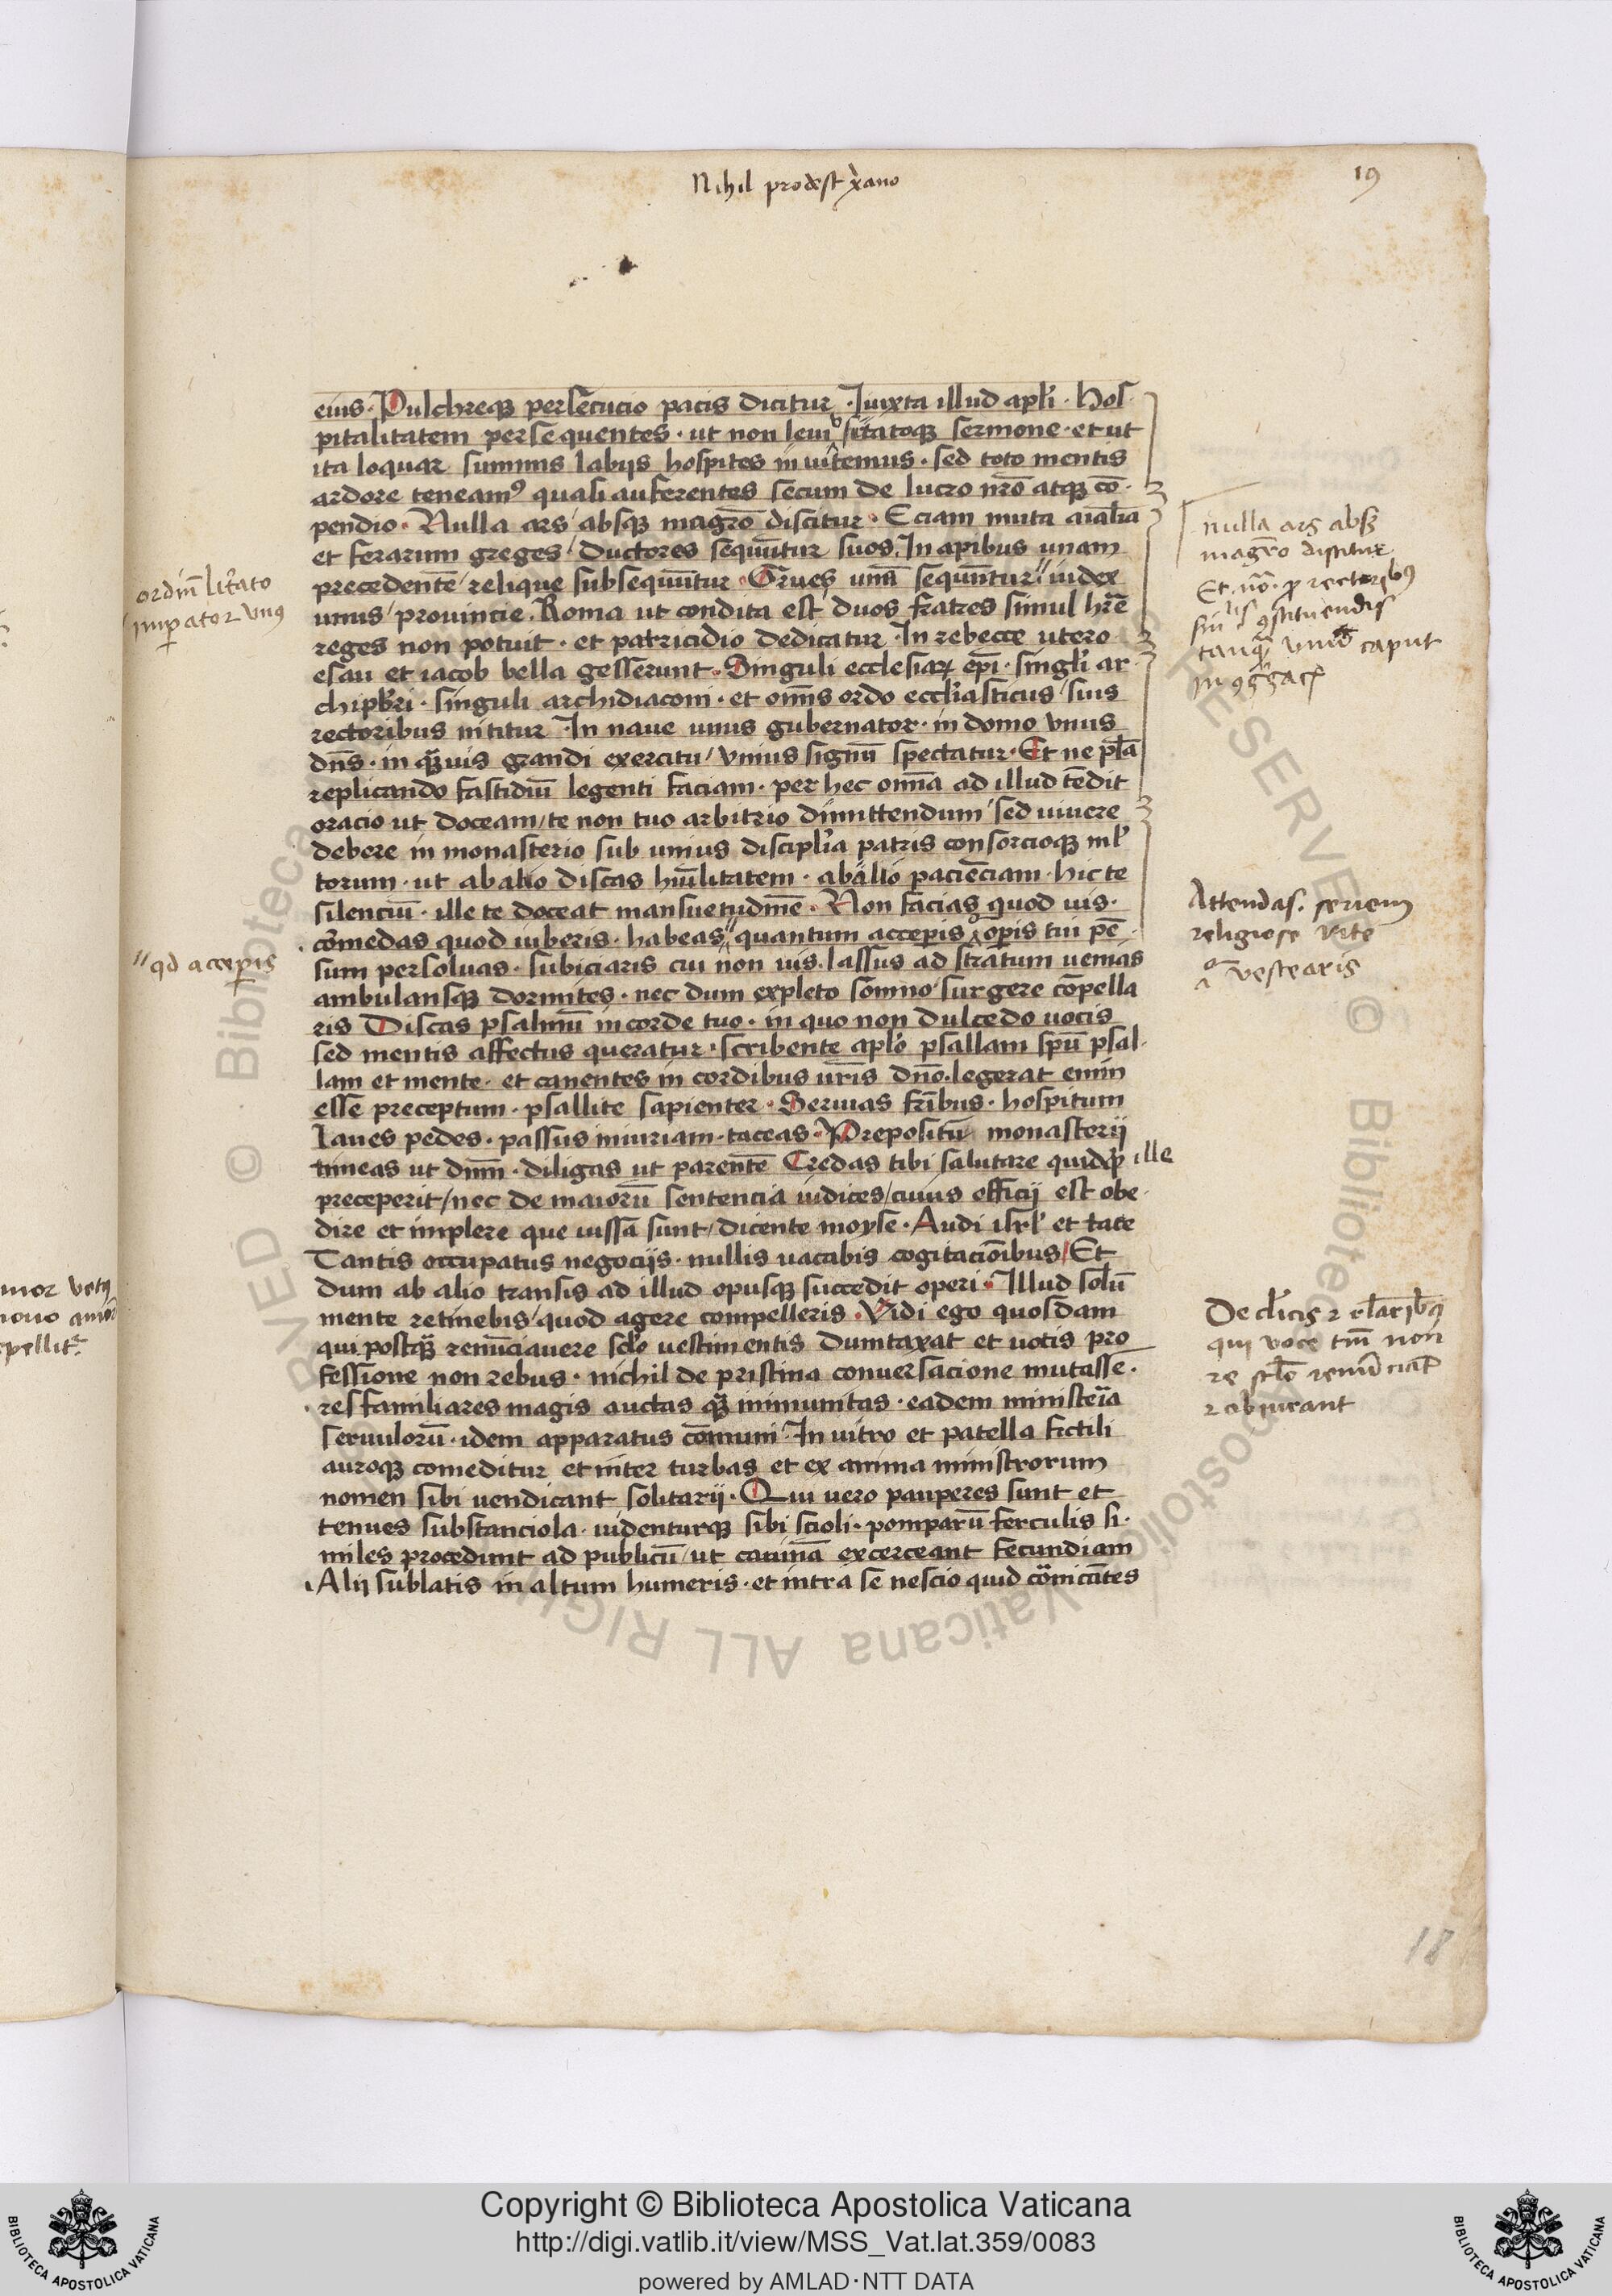 Nihil prodest xano
19
eius · Pulchreq persecucio pacis dicitur · Iuxta illud apli · Hos
pitalitatem persequentes · ut non leui sermone · et ut
ita loquar summis labijs hospites inuitemus · sed toto mentis
ardore teneam9 quasi auferentes secum de lucro nro atq co
pendio · Nulla ars / absq magro discitur · Eciam muta aialia
et ferarum greges / ductores sequuntur suos. In apibus unam
precedente / relique subsequuntur · Grues una sequuntur // iudex
unus / prouincie. Roma ut condita est duos fratres simul hre
reges non potuit · et patricidio dedicatur · In rebecce utero
esau et iacob bella gesserunt · Singuli ecclesiaꝝ epi · singli ar
chipbri · singuli archidiaconi · et omis ordo eccliasticus / suis
rectoribus nititur · In naue unus gubernator · in domo vnus
dns · in quis grandi exercitu / vnius signu spectatur · Et ne pla
replicando fastidiu legenti faciam · per hec omia ad illud tedit
oracio ut doceam / te non tuo arbitrio dimittendum / sed uiuere
debere in monasterio sub unius disciplia patris consorcioq ml
torum · ut ab alio discas humilitatem · ab alio pacienciam · hic te
silenciu · ille te doceat mansuetudine · Non facias quod uis ·
comedas quod iuberis · habeas // quantum acceperis opis tui pe
sum persoluas · subiciaris cui non uis. lassus ad stratum uenias
ambulansq dormites · nec dum expleto somno / surgere compella
ris Discas psalmu in corde tuo · in quo non dulcedo uocis
sed mentis affectus queratur · scribente aplo psallam spu psal
lam et mente · et canentes in cordibus uris dno. legerat enim
esse preceptum · psallite sapienter · Seruias fribus · hospitum
laues pedes · passus iniuriam · taceas · Prepositu monasterii
timeas ut dnm · diligas ut parente Credas tibi salutare quidq ille
preceperit / nec de maioru sentencia iudices / cuius officij est obe
dire et implere que iussa sunt / dicente moyse · Audi isrl et tace
Tantis occupatus negocijs · nullis uacabis cogitacionibus / Et
dum ab alio transis ad illud opusq succedit operi · Illud solu
mente retinebis / quod agere compelleris · Vidi ego quosdam
qui postq renunciauere sclo uestimentis dumtaxat et uocis pro
fessione non rebus · nichil de pristina conuersacione mutasse ·
res familiares magis auctas q imminutas · eadem ministeria
seruuloru · idem apparatus comuni · In uitro et patella fictili
auroq comeditur et inter turbas et examina ministrorum
nomen sibi uendicant solitarij · Qui uero pauperes sunt et
tenues substanciola · uidenturq sibi scioli · pomparu ferculis si
miles procedunt ad publicu / ut caninā exerceant fecundiam
Alij sublatis in altum humeris · et intra se nescio quid cornicātes
ordin litrato
imperator vnus
// qd acceperis
nulla ars absq
magro discitur
Et no p rectoribus
constituendis
tanq vnu caput
Attendas · seriem
religiose vite
vestearis
De clicis
qui voce tm non
re sclo renuciat
abiurant
18
Copyright © Biblioteca Apostolica Vaticana
http://digi.vatlib.it/view/MSS_Vat.lat.359/0083
powered by AMLAD·NTT DATA
BIBLIOTECA APOSTOLICA VATICANA
BIBLIOTECA APOSTOLICA VATICANA